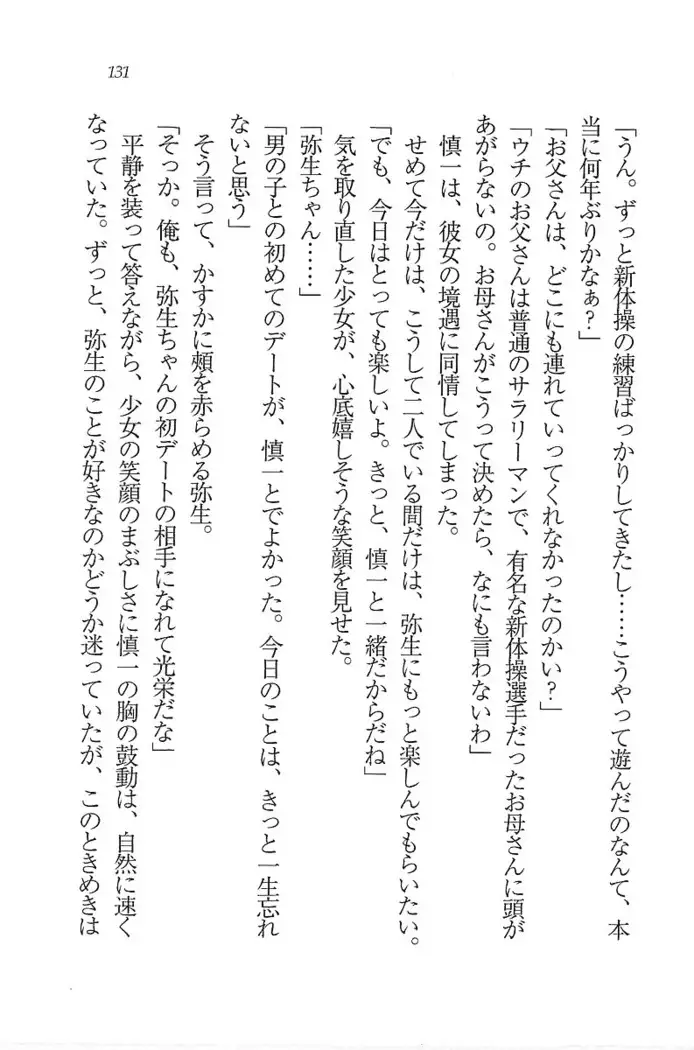 131
「うん。ずっと新体操の練習ばっかりしてきたし……こうやって遊んだのなんて、本
当に何年ぶりかなぁ？」
「お父さんは、どこにも連れていってくれなかったのかい？」
「ウチのお父さんは普通のサラリーマンで、有名な新体操選手だったお母さんに頭が
あがらないの。お母さんがこうって決めたら、なにも言わないわ」
慎一は、彼女の境遇に同情してしまった。
せめて今だけは、こうして二人でいる間だけは、弥生にもっと楽しんでもらいたい。
「でも、今日はとっても楽しいよ。きっと、慎一と一緒だからだね」
気を取り直した少女が、心底嬉しそうな笑顔を見せた。
「弥生ちゃん……」
「男の子との初めてのデートが、慎一とでよかった。今日のことは、きっと一生忘れ
ないと思う」
そう言って、かすかに頬を赤らめる弥生。
「そっか。俺も、弥生ちゃんの初デートの相手になれて光栄だな」
平静を装って答えながら、少女の笑顔のまぶしさに慎一の胸の鼓動は、自然に速く
なっていた。ずっと、弥生のことが好きなのかどうか迷っていたが、このときめきは